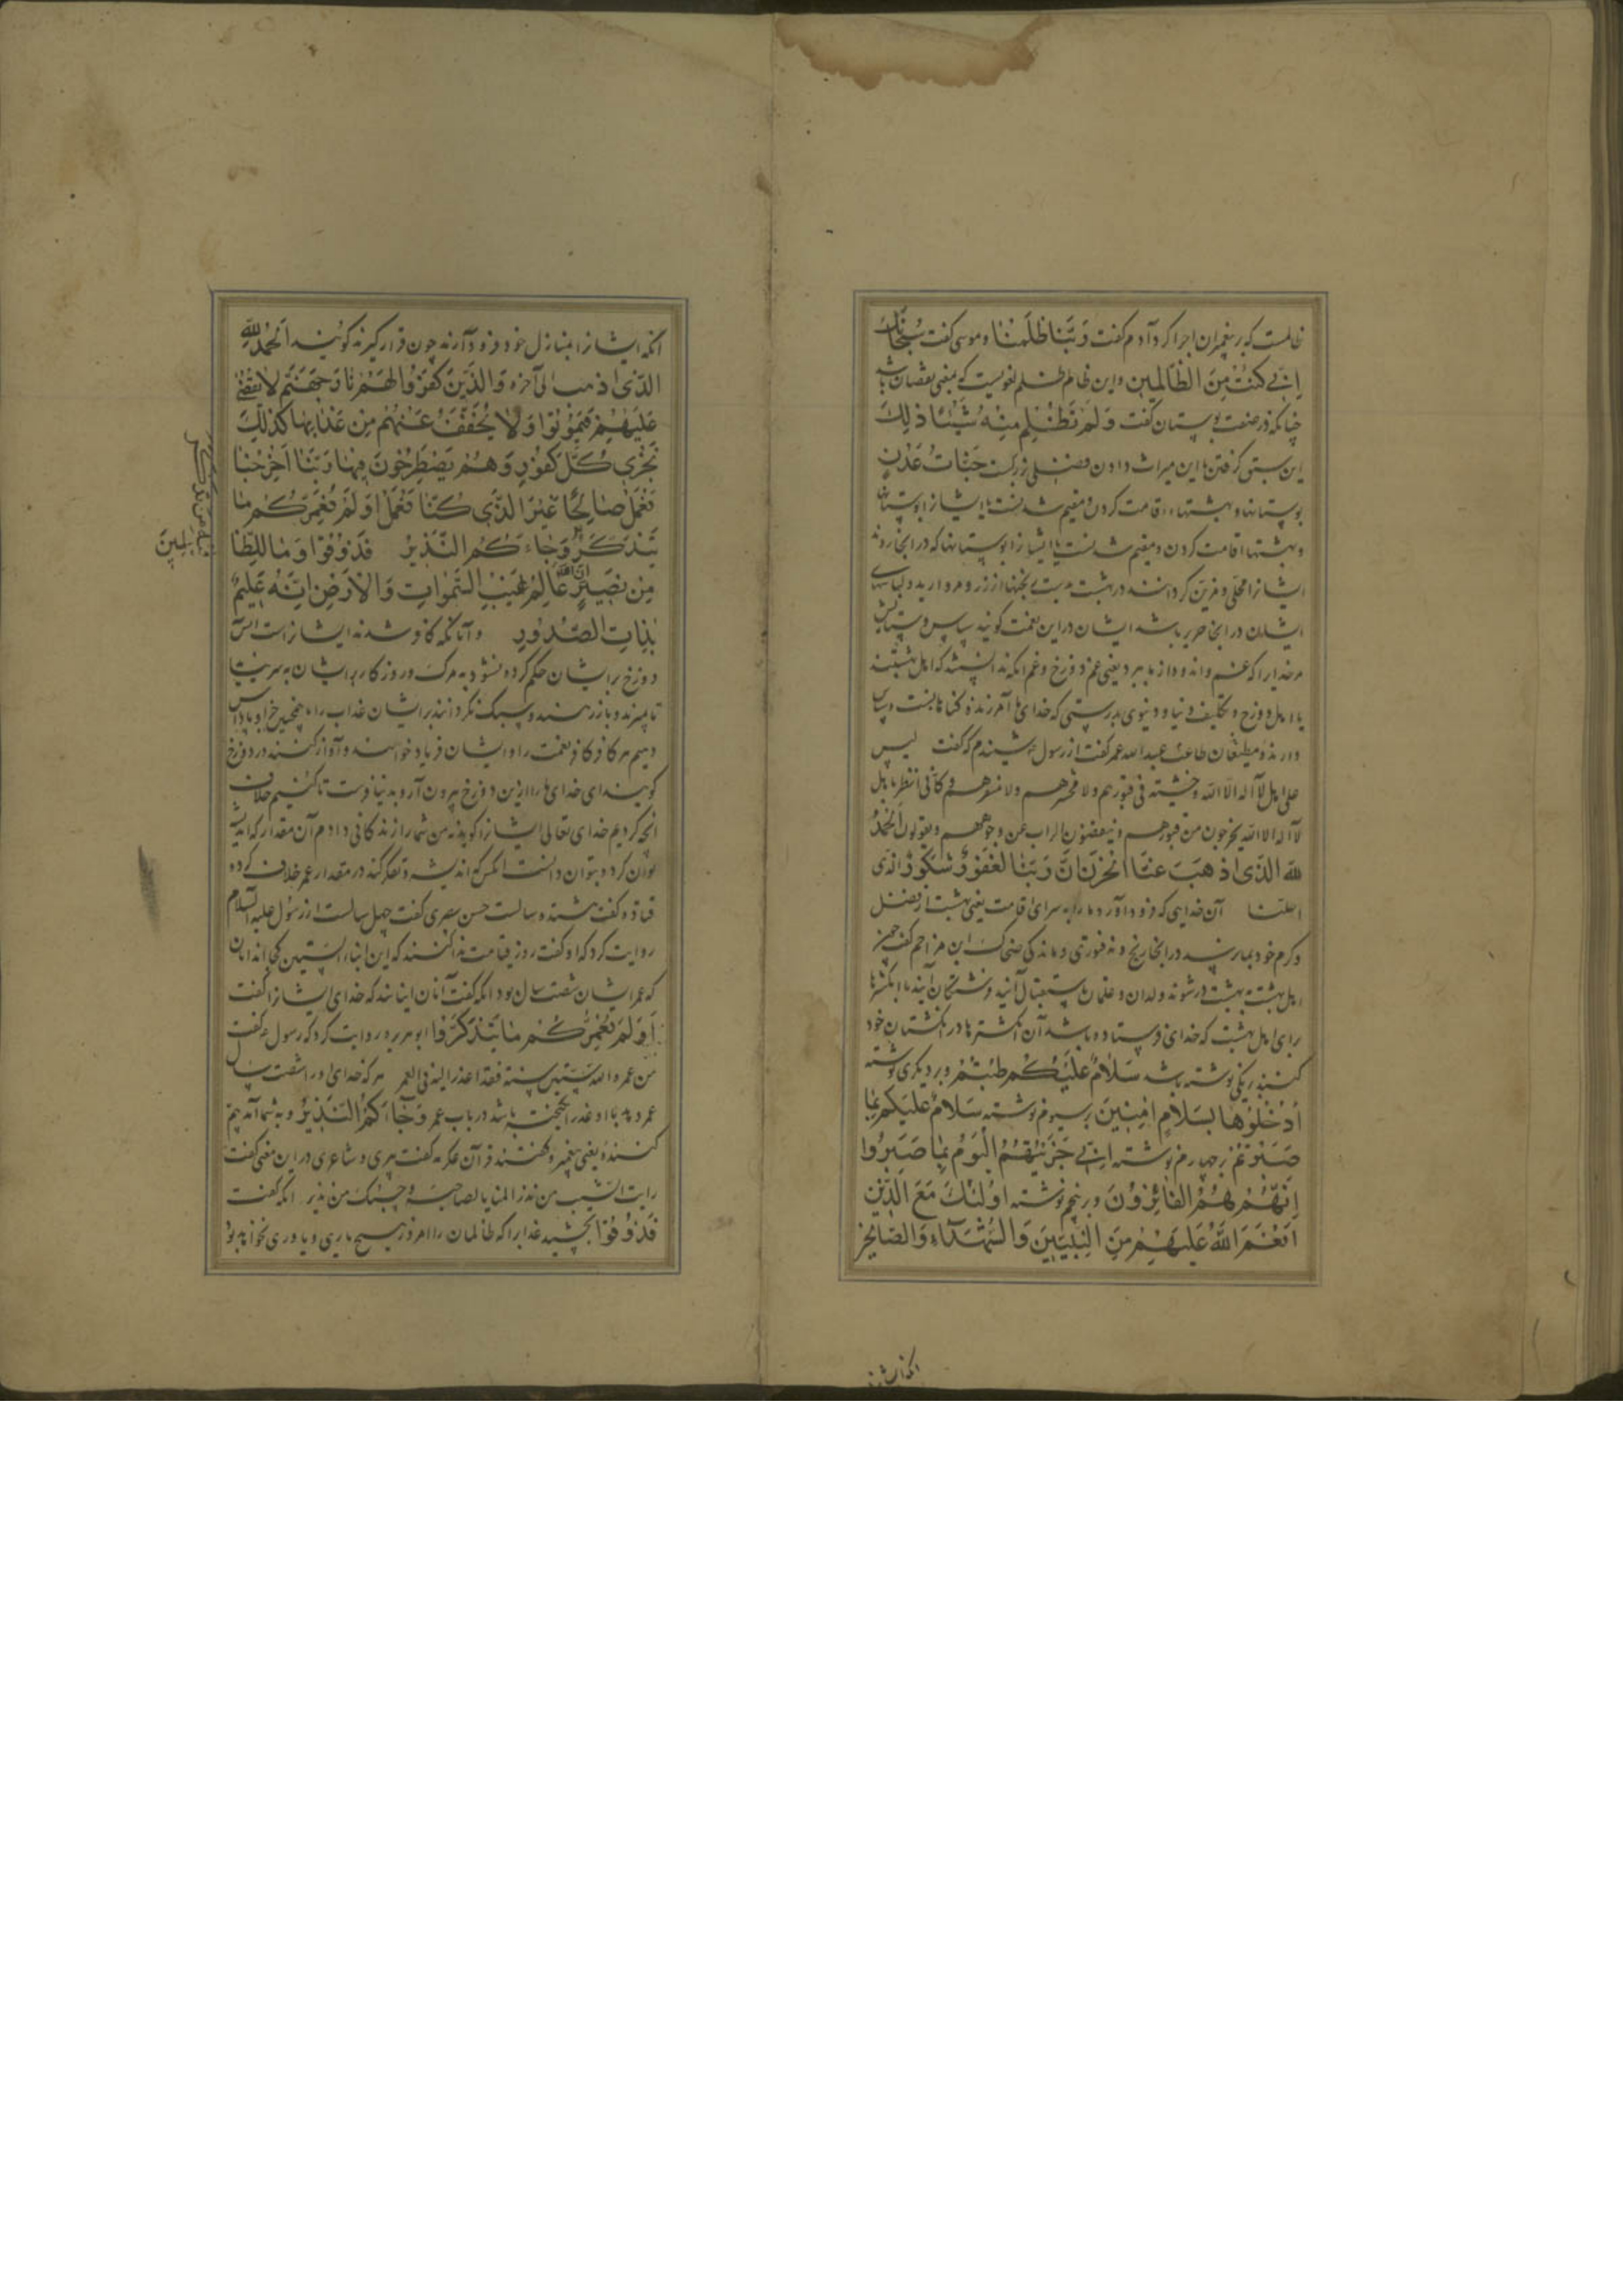 ظالمست که بر پیغمبران اجرا کرد آدم گفت رَبَّنا ظَلَمنا و موسی گفت سُبحَانَکَ
اِنّی کُنتُ مِنَ الظّالِمین و این ظالم ظلم لغویست که بمعنی نقصان باشد
چنانکه در صفت بوستان گفت وَلَم تَظلِم مِنهُ شَیئًا ذلِکَ
این سبق گرفتن با این میراث دادن فضلی بزرگست جَنّاتُ عَدنٍ
بوستانها و بهشتهاء اقامت کردن و مقیم شدنست ایشانرا بوستانها
و بهشتها اقامت کردن و مقیم شدنست ایشانرا بوستانها که در آنجا روند
ایشانرا محلی و مزین گردانند در بهشت بدست برنجنها از زر و مروارید و لباسهای
ایشان در آنجا حریر باشد ایشان در این نعمت گویند سپاس و ستایش
مر خدایرا که غم و اندوه از ما ببرد یعنی غم دوزخ و غم آنکه ندانستند که اهل بهشتند
یا اهل دوزخ و تکلیف دنیا و دنیوی بدرستی که خدای ما آمرزنده گناهانست و سپاس
دارنده مطیعان طاعت عبدالله عمر گفت از رسول شنیدم که گفت لیس
علی اهل لا اله الا الله وحشة فی قبورهم ولا محشرهم ولا منشرهم و کأنی انظر باهل
لا اله الا الله یخرجون من قبورهم و ینفضون التراب عن وجوههم و یقولون الحَمدُ
لله الَّذی اَذهَبَ عَنَّا الحَزَنَ اِنَّ رَبَّنا لَغَفُورٌ شَکُورٌ الذی
احلنا آن خدایی که فرود آورد ما را به سرای اقامت یعنی بهشت از فضل
و کرم خود بما نرسد در آنجا رنج و نه فتوری و ماندگی ضحاک ابن مزاحم گفت چون
اهل بهشت به بهشت در شوند ولدان و غلمان باستقبال آیند و فرشتگان آیند با انگشترها
برای اهل بهشت که خدای فرستاده باشد آن انگشترها در انگشتان خود
کنند بر یکی نوشته باشد سَلامٌ عَلَیکُم طِبتُم و بر دیگری نوشته
اُدخُلُوها بِسَلامٍ امِنینَ بر سیوم نوشته سَلامٌ عَلَیکُم بِما
صَبَرتُم بر چهارم نوشته اِنّی جَزَیتُهُمُ الیَومَ بِما صَبَرُوا
اِنَّهُم هُمُ الفائِزُونَ و بر پنجم نوشته اُولئِکَ مَعَ الَّذینَ
اَنعَمَ اللهُ عَلَیهِم مِنَ النَّبِیّینَ وَالشُّهَداءِ وَالصّالِحین
آنگه ایشانرا
آنگه ایشانرا بمنازل خود فرود آرند چون قرار گیرند گویند اَلحَمدُ لله
الَّذی اَذهب الی آخره وَالَّذینَ کَفَرُوا لَهُم نارُ جَهَنَّمَ لا یُقضی
عَلَیهِم فَیَمُوتُوا وَلا یُخَفَّفُ عَنهُم مِن عَذابِها کَذلِکَ
نَجزی کُلَّ کَفُورٍ وَهُم یَصطَرِخُونَ فیها رَبَّنا اَخرِجنا
نَعمَل صالِحًا غَیرَ الَّذی کُنّا نَعمَلُ اَوَلَم نُعَمِّرکُم ما
یَتَذَکَّرُ وَجاءَکُمُ النَّذیرُ فَذُوقُوا وَما لِلظّا
فیه من تذکر
لمینَ
مِن نَصیرٍ اِنَّ اللهَ عالِمُ غَیبِ السَّمواتِ وَالاَرضِ اِنَّهُ عَلیمٌ
بِذاتِ الصُّدُورِ و آنانکه کافر شدند ایشانراست آتش
دوزخ بر ایشان حکم کرده نشود به مرگ و روزگار بر ایشان به سر نیاید
تا بمیرند و باز رهند و سبک نگردانند بر ایشان عذاب را همچنین جزا و پاداش
دهیم هر کافر کافر نعمت را و ایشان فریاد خواهند و آواز کنند در دوزخ
گویند ای خدای ما ما را ازین دوزخ بیرون آر و بدنیا فرست تا کنیم خلاف
آنچه کردیم خدای تعالی ایشانرا گوید نه من شما را زندگانی دادم آن مقدار که اندیشه
توان کرد و بتوان دانست آنکس که اندیشه و تفکر کند در مقدار عمر خلاف کرده
قتاده گفت هشتده سالست حسن بصری گفت چهل سالست از رسول علیه السلام
روایت کرد که او گفت روز قیامت ندا کنند که این ابناء الستین کجااند آنان
که عمر ایشان شصت سال بود آنگه گفت آنان اینانند که خدای ایشانرا گفت
اَوَلَم نُعَمِّرکُم ما یَتَذَکَّرُ فا ابو هریره روایت کرد که رسول گفت
من عمره الله ستین سنة فقد اعذر الیه فی العمر هر که خدای او را شصت سال
عمر دهد با او عذر انگیخته باشد در باب عمر وَجاءَکُمُ النَّذیرُ و به شما آمد بیم
کننده یعنی پیغمبر و گفتند قرآن عکرمه گفت پیری و شاعری در این معنی گفت
رایت الشیب من نذر المنایا لصاحبه و حسبک من نذیر آنگه گفت
فَذُوقُوا بچشید عذابرا که ظالمان را امروز هیچ یاری و یاوری نخواهد بود